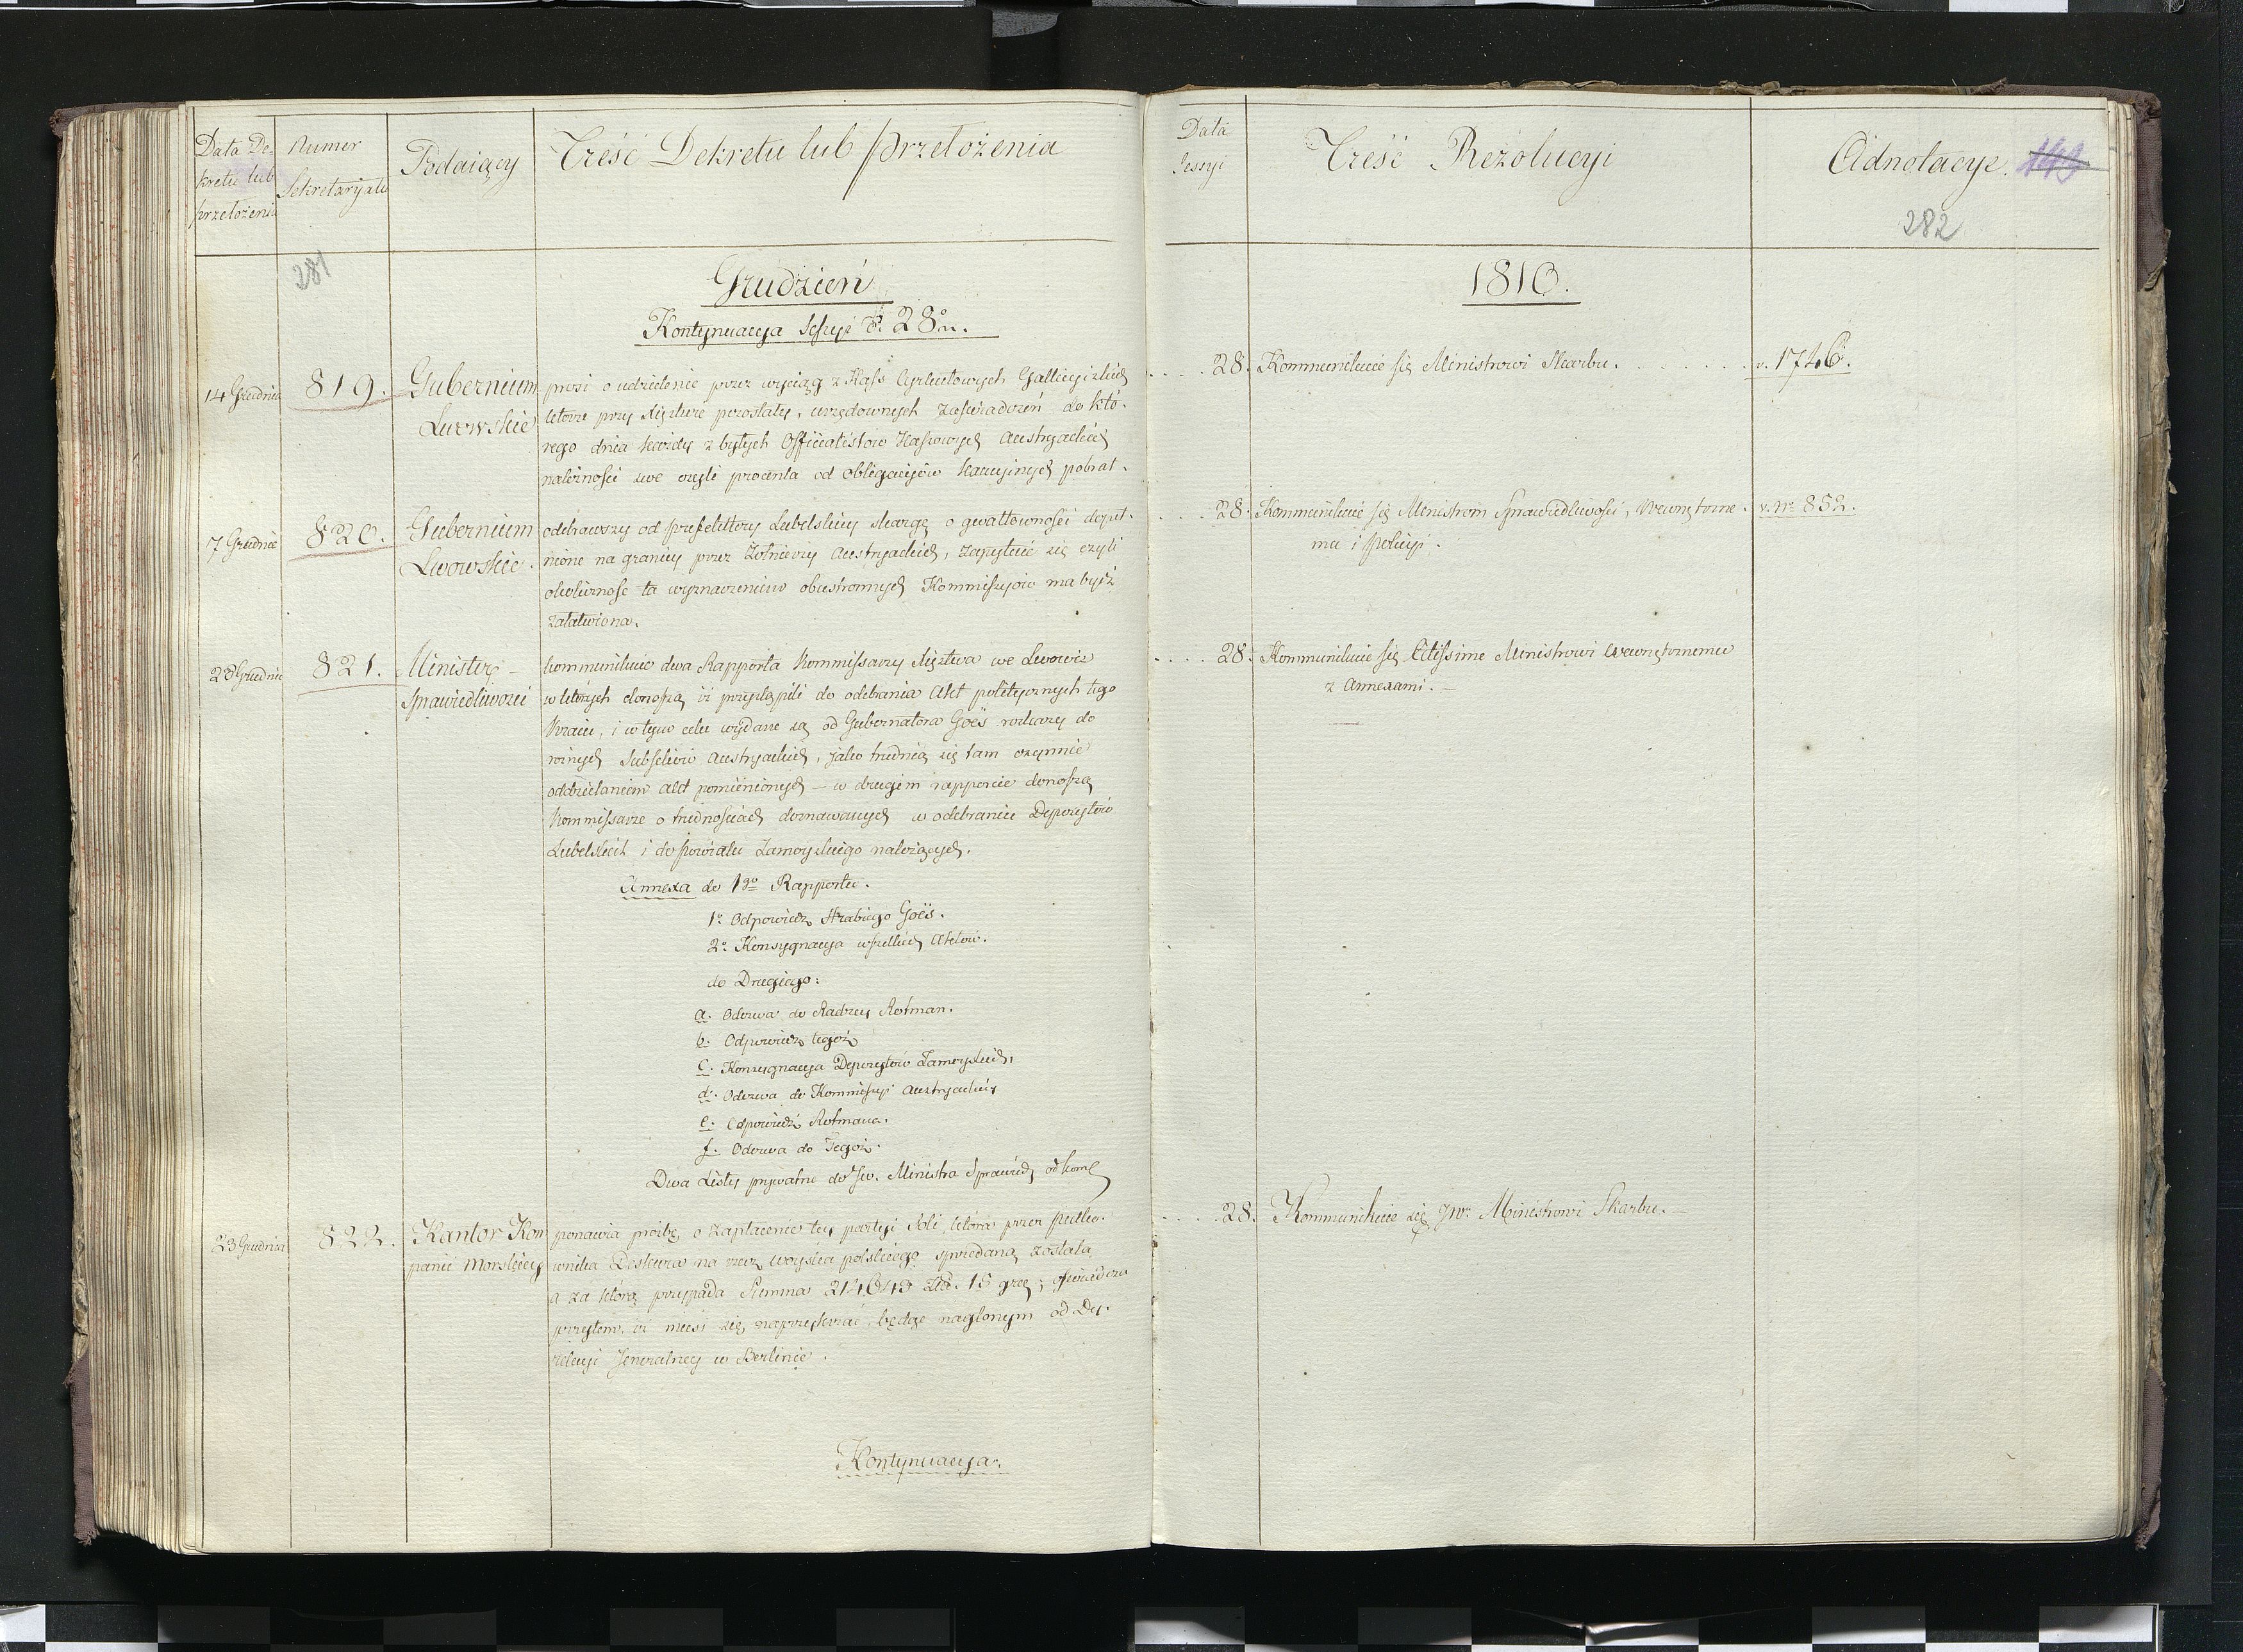 Data De-
kretu lub
przełożenia
Numer
Sekretaryatu
Podaiący
Treść Dekretu lub przełożenia
Data
Sessyi
Treść Rezolucyi
Adnotacye.
282
281
Grudzień
1810.
Kontynuacya Sessyi d. 28º
14 Grudnia
819.
Gubernium
Lwowskie
prosi o udzielenie przez wyciąg z Kass Cyrkułowych Gallicyiskich
które przy Xięztwie pozostały, urzędownych zaświadczeń do któ-
rego dnia każdy z byłych Officialistów Kassowych Austryackich
należności swe czyli procenta od obligacyiów kaucyinych pobrał.
28. Kommunikuie się Ministrowi Skarbu.
v. 1746.
7 Grudnia
820.
Gubernium
Lwowskie.
odebrawszy od prefektury Lubelskiey skargę o gwałtowności dopeł-
nione na granicy przez Żołnierzy Austryackich, zapytuie się czyli
okoliczność ta wyznaczeniem obustronnych Kommissyów ma być
załatwiona.
28. Kommunikuie się Ministrom Sprawiedliwości, Wewnętrzne-
mu i Policyi.
v. Nº 852.
28 Grudnia
821.
Minister
Sprawiedliwości
kommunikuie dwa Rapporta Kommissarzy Xięztwa we Lwowie
w których donoszą iż przystąpili do odebrania Akt politycznych tego
Kraiu, i w tym celu wydane są od Gubernatora Goës rozkazy do
różnych Subseliów Austryackich, jako trudnią się tam czynnie
oddzielaniem akt pomienionych – w drugim rapporcie donoszą
Kommissarze o trudnościach doznawanych w odebraniu Depozytów
Lubelskich i do powiatu Zamoyskiego należących.
28. Kommunikuie się Citissime Ministrowi Wewnętrznemu
z Annexami. –
Annexa do 1go Rapportu.
1º Odpowiedź Hrabiego Goës.
2º Konsygnacya wszelkich Aktów.
do Drugiego:
a. Odezwa do Radzcy Rotman.
b. Odpowiedź tegoż
c. Konsygnacya Depozytów Zamoyskich,
d. Odezwa do Kommissyi Austryackiey
e. Odpowiedź Rotmana.
f. Odezwa do Tegoż.
Dwa Listy prywatne do Jw. Ministra Sprawied. od kom.
23 Grudnia
822.
Kantor Kom
panii Morskiey
ponawia prośbę, o zapłacenie tey partyi Soli która przez pułko-
wnika na rzecz woyska polskiego sprzedaną została
a za którą przypada Summa 214643 Złł. 15 gr.; oświadcza
przytem, iż musi się naprzykrzać będąc naglonym od Dy-
rekcyi Jeneralney w Berlinie.
28. Kommunikuie się Jwº Ministrowi Skarbu. –
Kontynuacya.